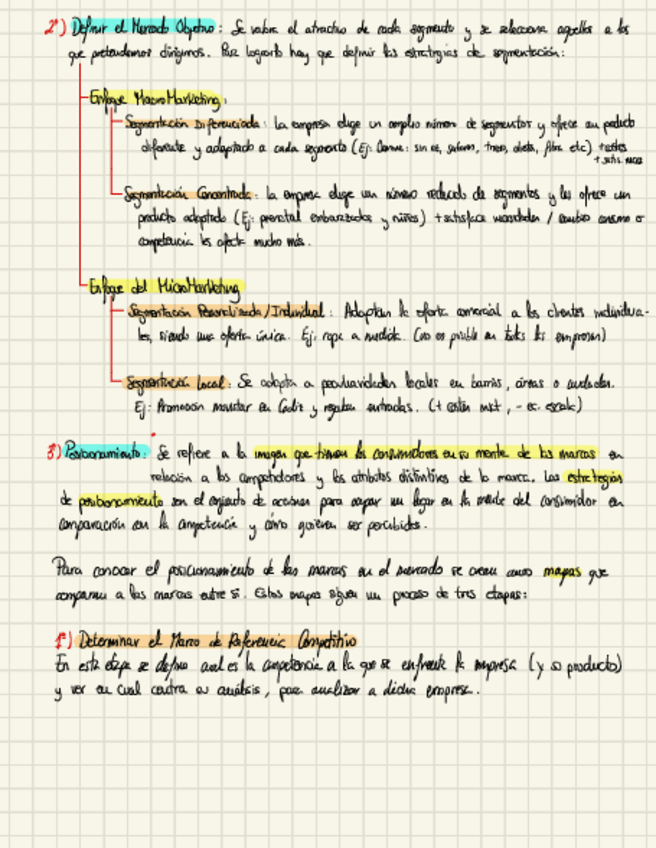 2º) Definir el Mercado Objetivo: Se valora el atractivo de cada segmento y se selecciona aquellos a los
que pretendemos dirigirnos. Para lograrlo hay que definir las estrategias de segmentación:
Enfoque MacroMarketing:
Segmentación Diferenciada: La empresa elige un amplio número de segmentos y ofrece un producto
diferente y adaptado a cada segmento (Ej: Danone: sin, fibra etc) + costes
+ satis.
Segmentación Concentrada: la empresa elige un número reducido de segmentos y les ofrece un
producto adaptado (Ej: prenatal embarazadas y niños) + satisface necesidades / cambio consumo o
competencia les afecta mucho más.
Enfoque del MicroMarketing
Segmentación Personalizada/Individual: Adaptan la oferta comercial a los clientes individua-
les, siendo una oferta única. Ej, ropa a medida. (no es posible en todas las empresas)
Segmentación Local: Se adapta a peculiaridades locales en barrios, áreas o ciudades.
Ej: Promoción movistar en Cádiz y regalan entradas. (+ costes mkt, - ec. escala)
3º) Posicionamiento: Se refiere a la imagen que tienen los consumidores en su mente de las marcas en
relación a los competidores y los atributos distintivos de la marca. Las estrategias
de posicionamiento son el conjunto de acciones para ocupar un lugar en la mente del consumidor en
comparación con la competencia y cómo quieren ser percibidos.
Para conocer el posicionamiento de las marcas en el mercado se crean unos mapas que
comparan a las marcas entre sí. Estos mapas siguen un proceso de tres etapas:
1º) Determinar el Marco de Referencia Competitivo
En esta etapa se define cual es la competencia a la que se enfrenta la empresa (y su producto)
y ver en cual centra su análisis, para analizar a dicha empresa.